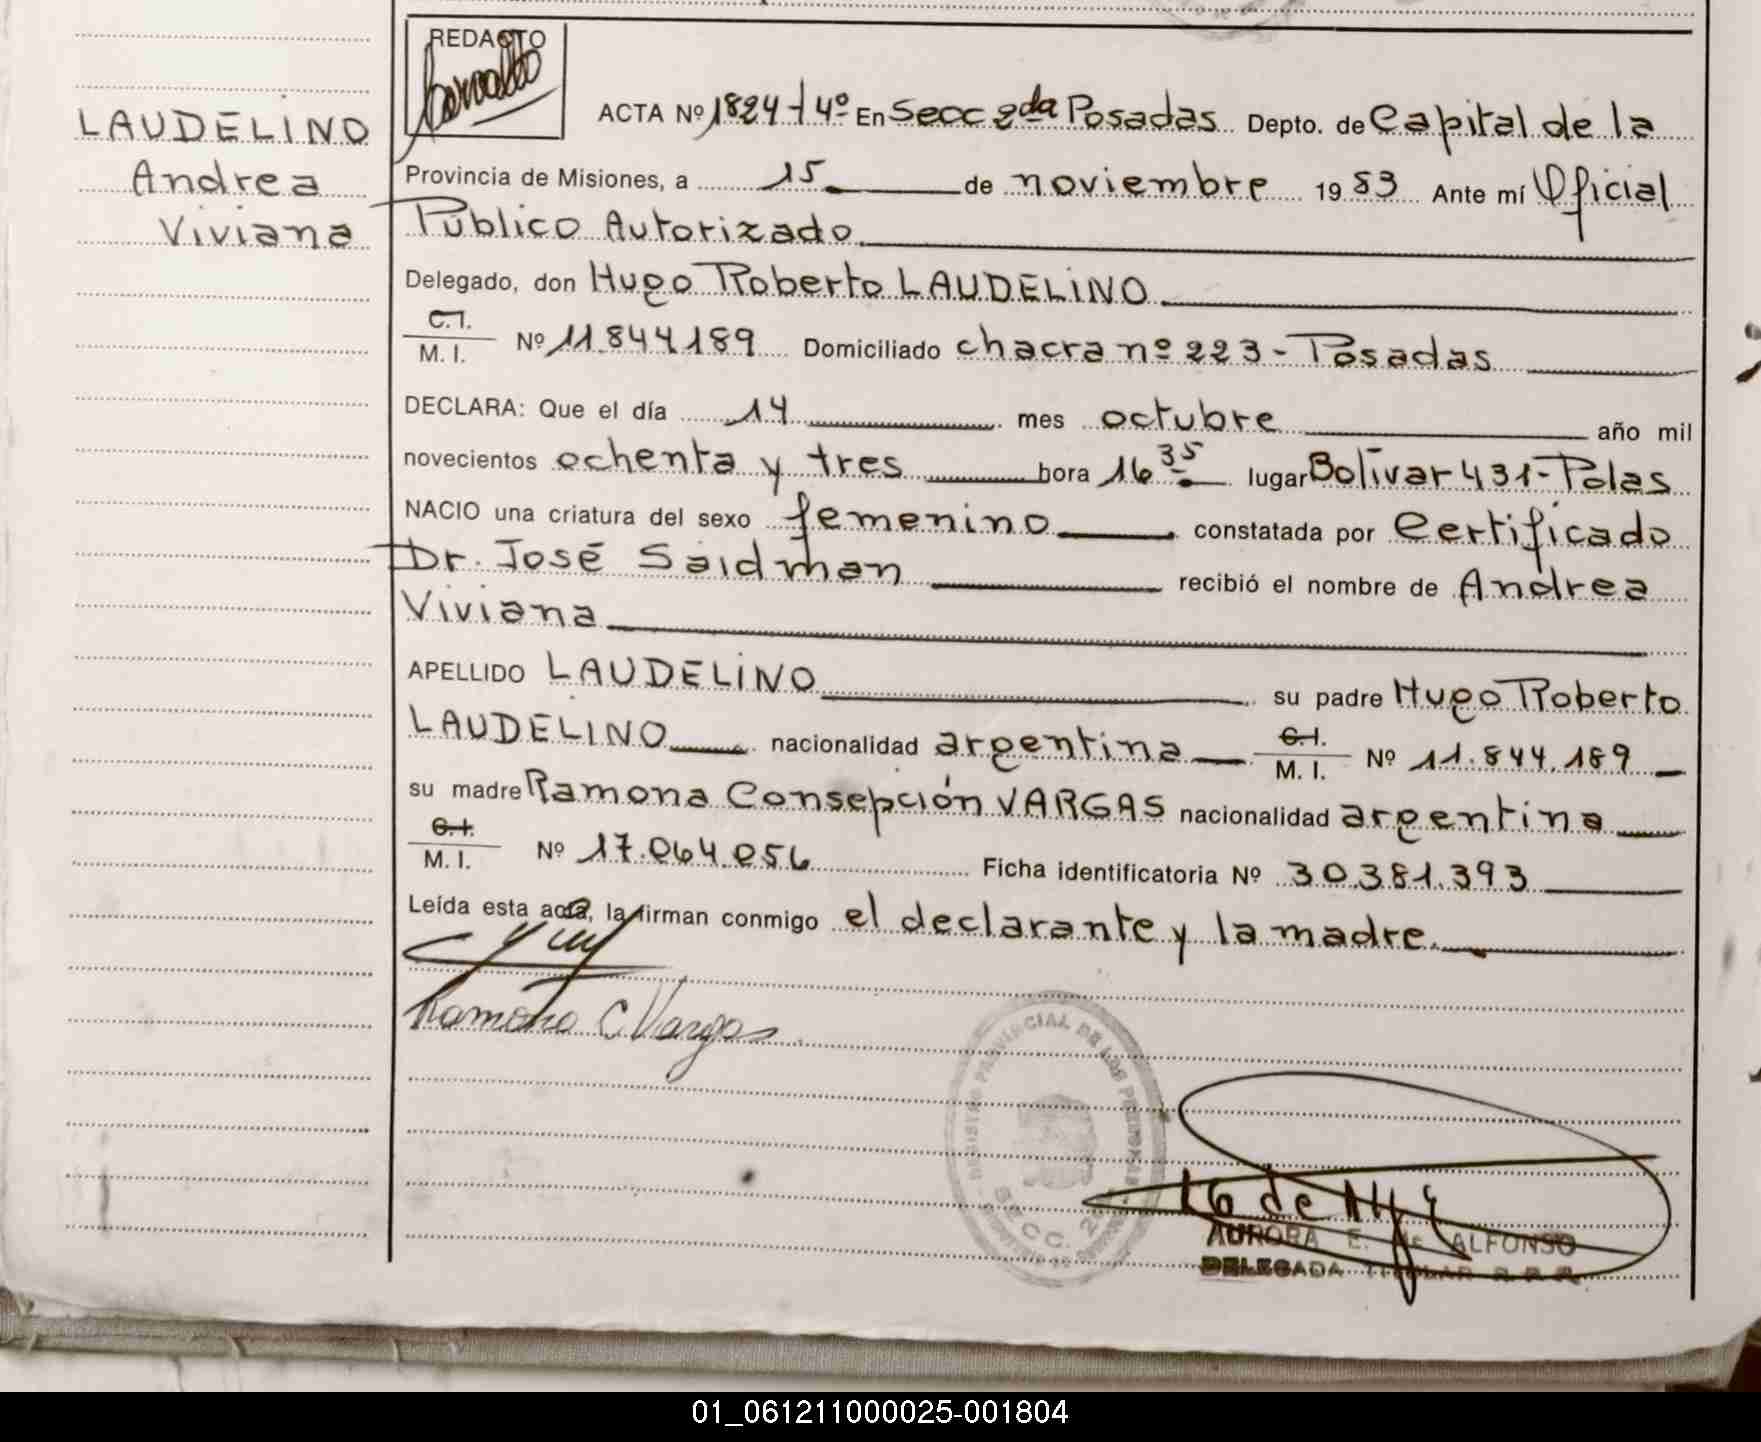 REDACTO
LAUDELINO
Andrea
Viviana
ACTA Nº 1824-4º En Secc 2da Posadas Depto. de Capital de la
Provincia de Misiones, a 15 de noviembre 1983 Ante mí Oficial
Público Autorizado
Delegado, don Hugo Roberto LAUDELINO
C.I.
M. I. Nº 11.844.189 Domiciliado chacra nº 223 - Posadas
DECLARA: Que el día 14 mes octubre año mil
novecientos ochenta y tres hora 16 35 lugar Bolívar 431 - Pdas
NACIO una criatura del sexo femenino constatada por Certificado
Dr. José Saidman recibió el nombre de Andrea
Viviana
APELLIDO LAUDELINO su padre Hugo Roberto
LAUDELINO nacionalidad argentina C.I.
M. I. Nº 11.844.189
su madre Ramona Consepción VARGAS nacionalidad argentina
C.I.
M. I. Nº 17.064.056 Ficha identificatoria Nº 30.381.393
Leída esta acta, la firman conmigo el declarante y la madre.
Ramona C Vargas
REGISTRO PROVINCIAL DE LAS PERSONAS
SECC. 2
AURORA E. de ALFONSO
DELEGADA TITULAR R. P. P.
01_061211000025-001804